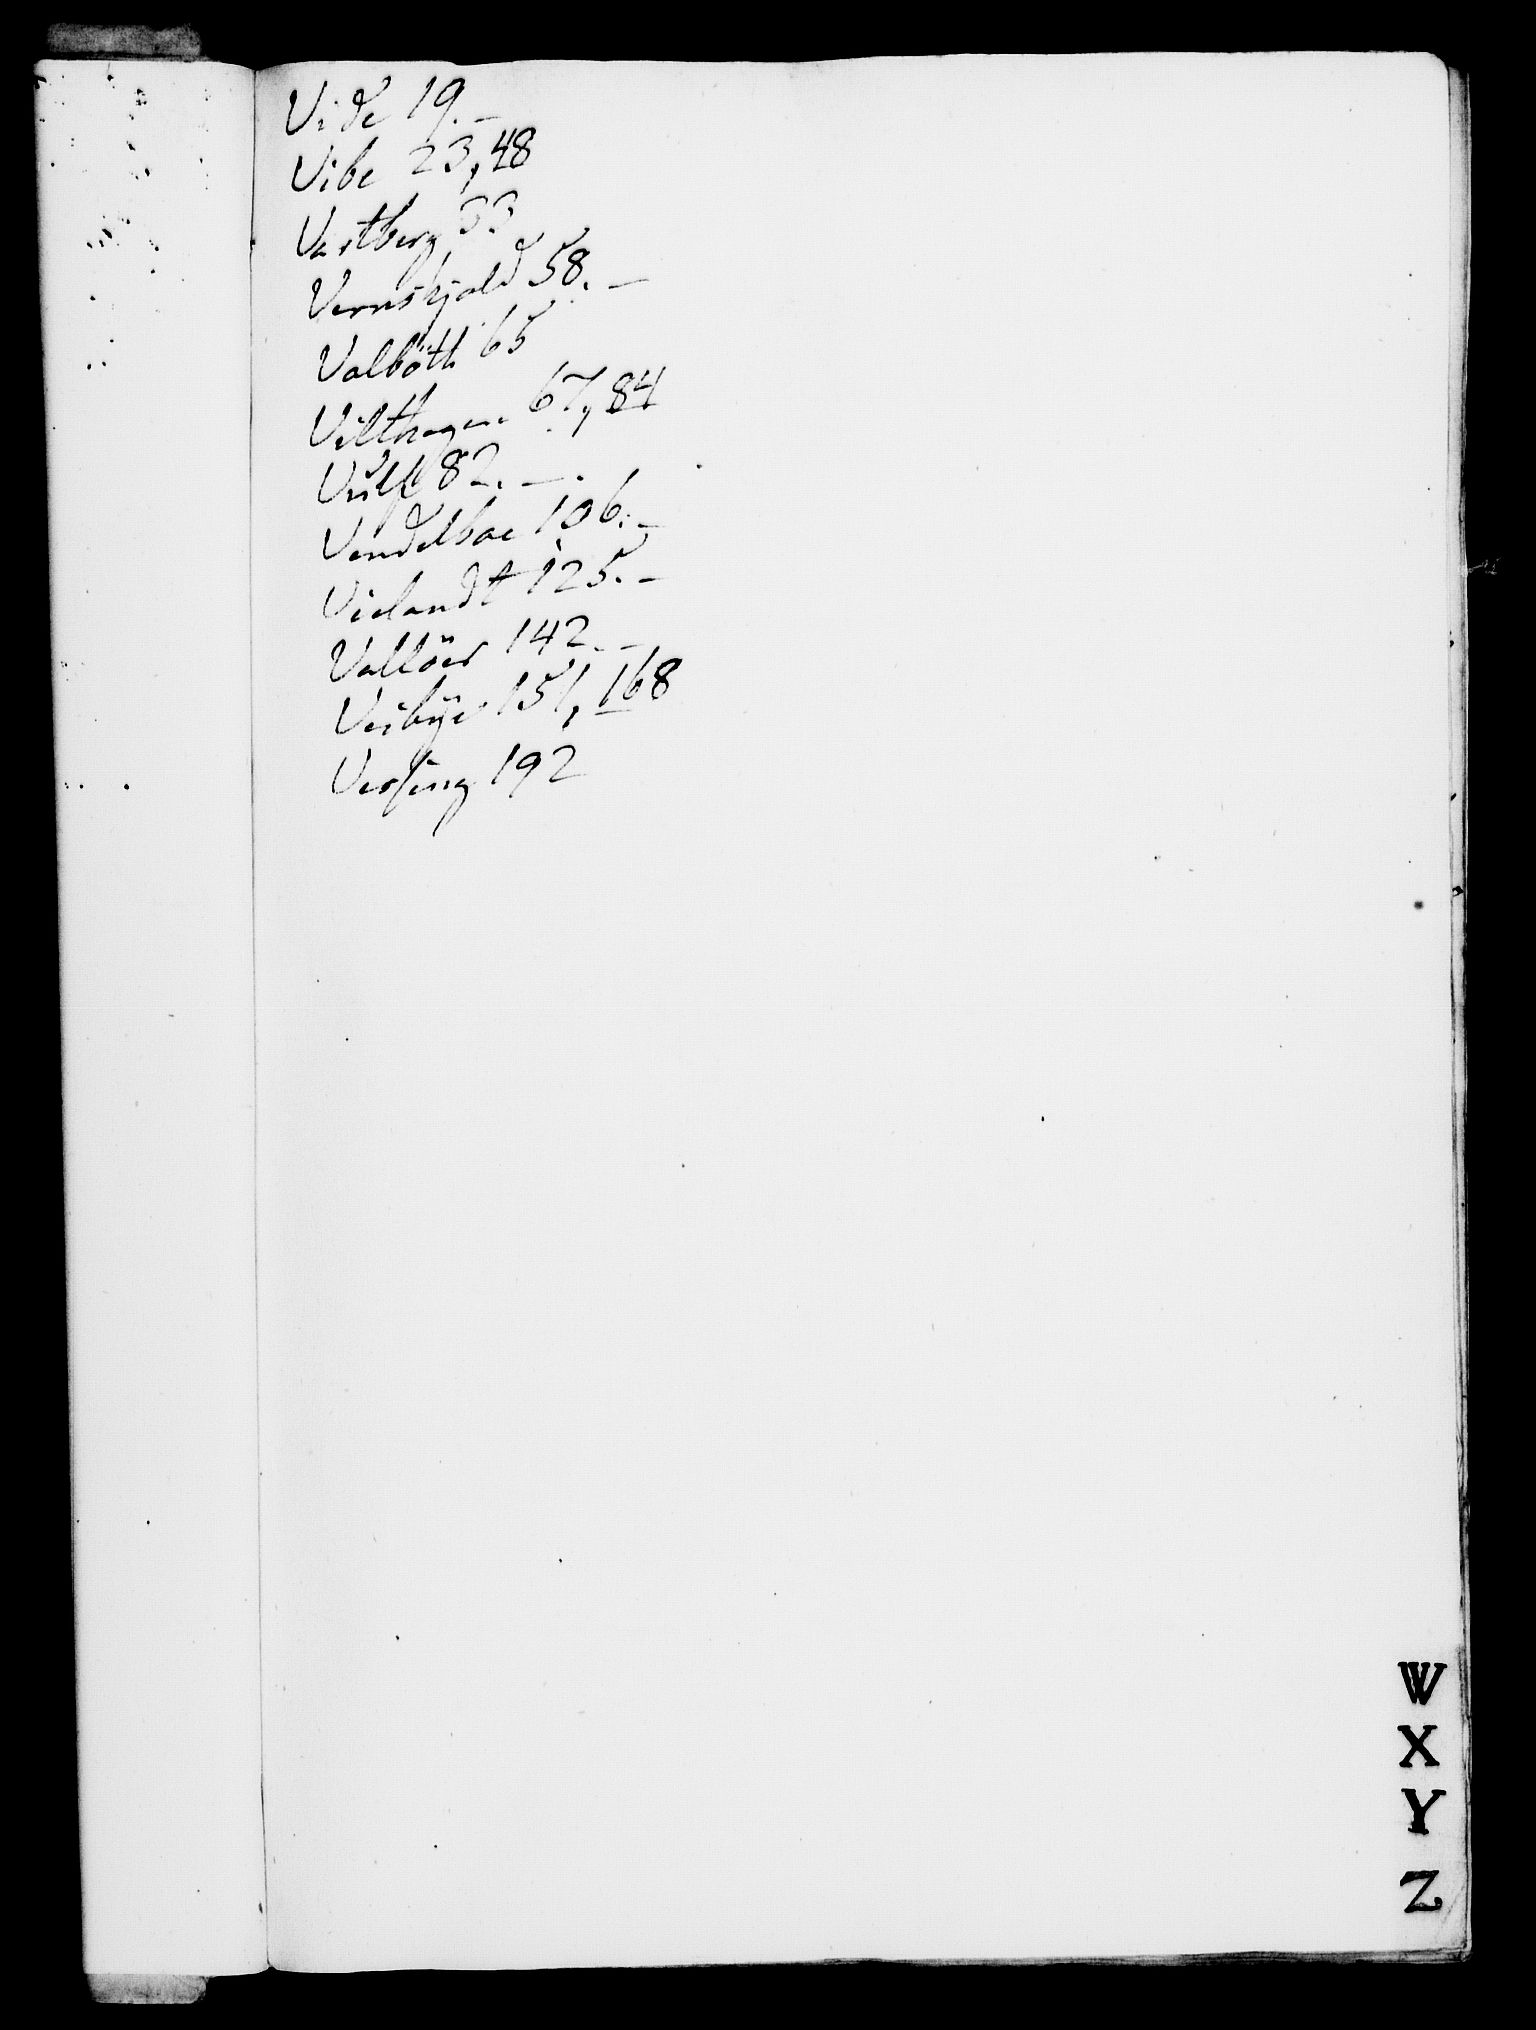 Vide 19.–
Vibe 23, 48
Vartberg 33
Vernskjold 58. –
Valböth 65
Vilthagen 67, 84
Vulf 82. –.
Vendelboe 106. –
Vielandt 125. –
Vallöer 142. –
Veibÿe 151, 168
Versing 192
W
X
Y
Z